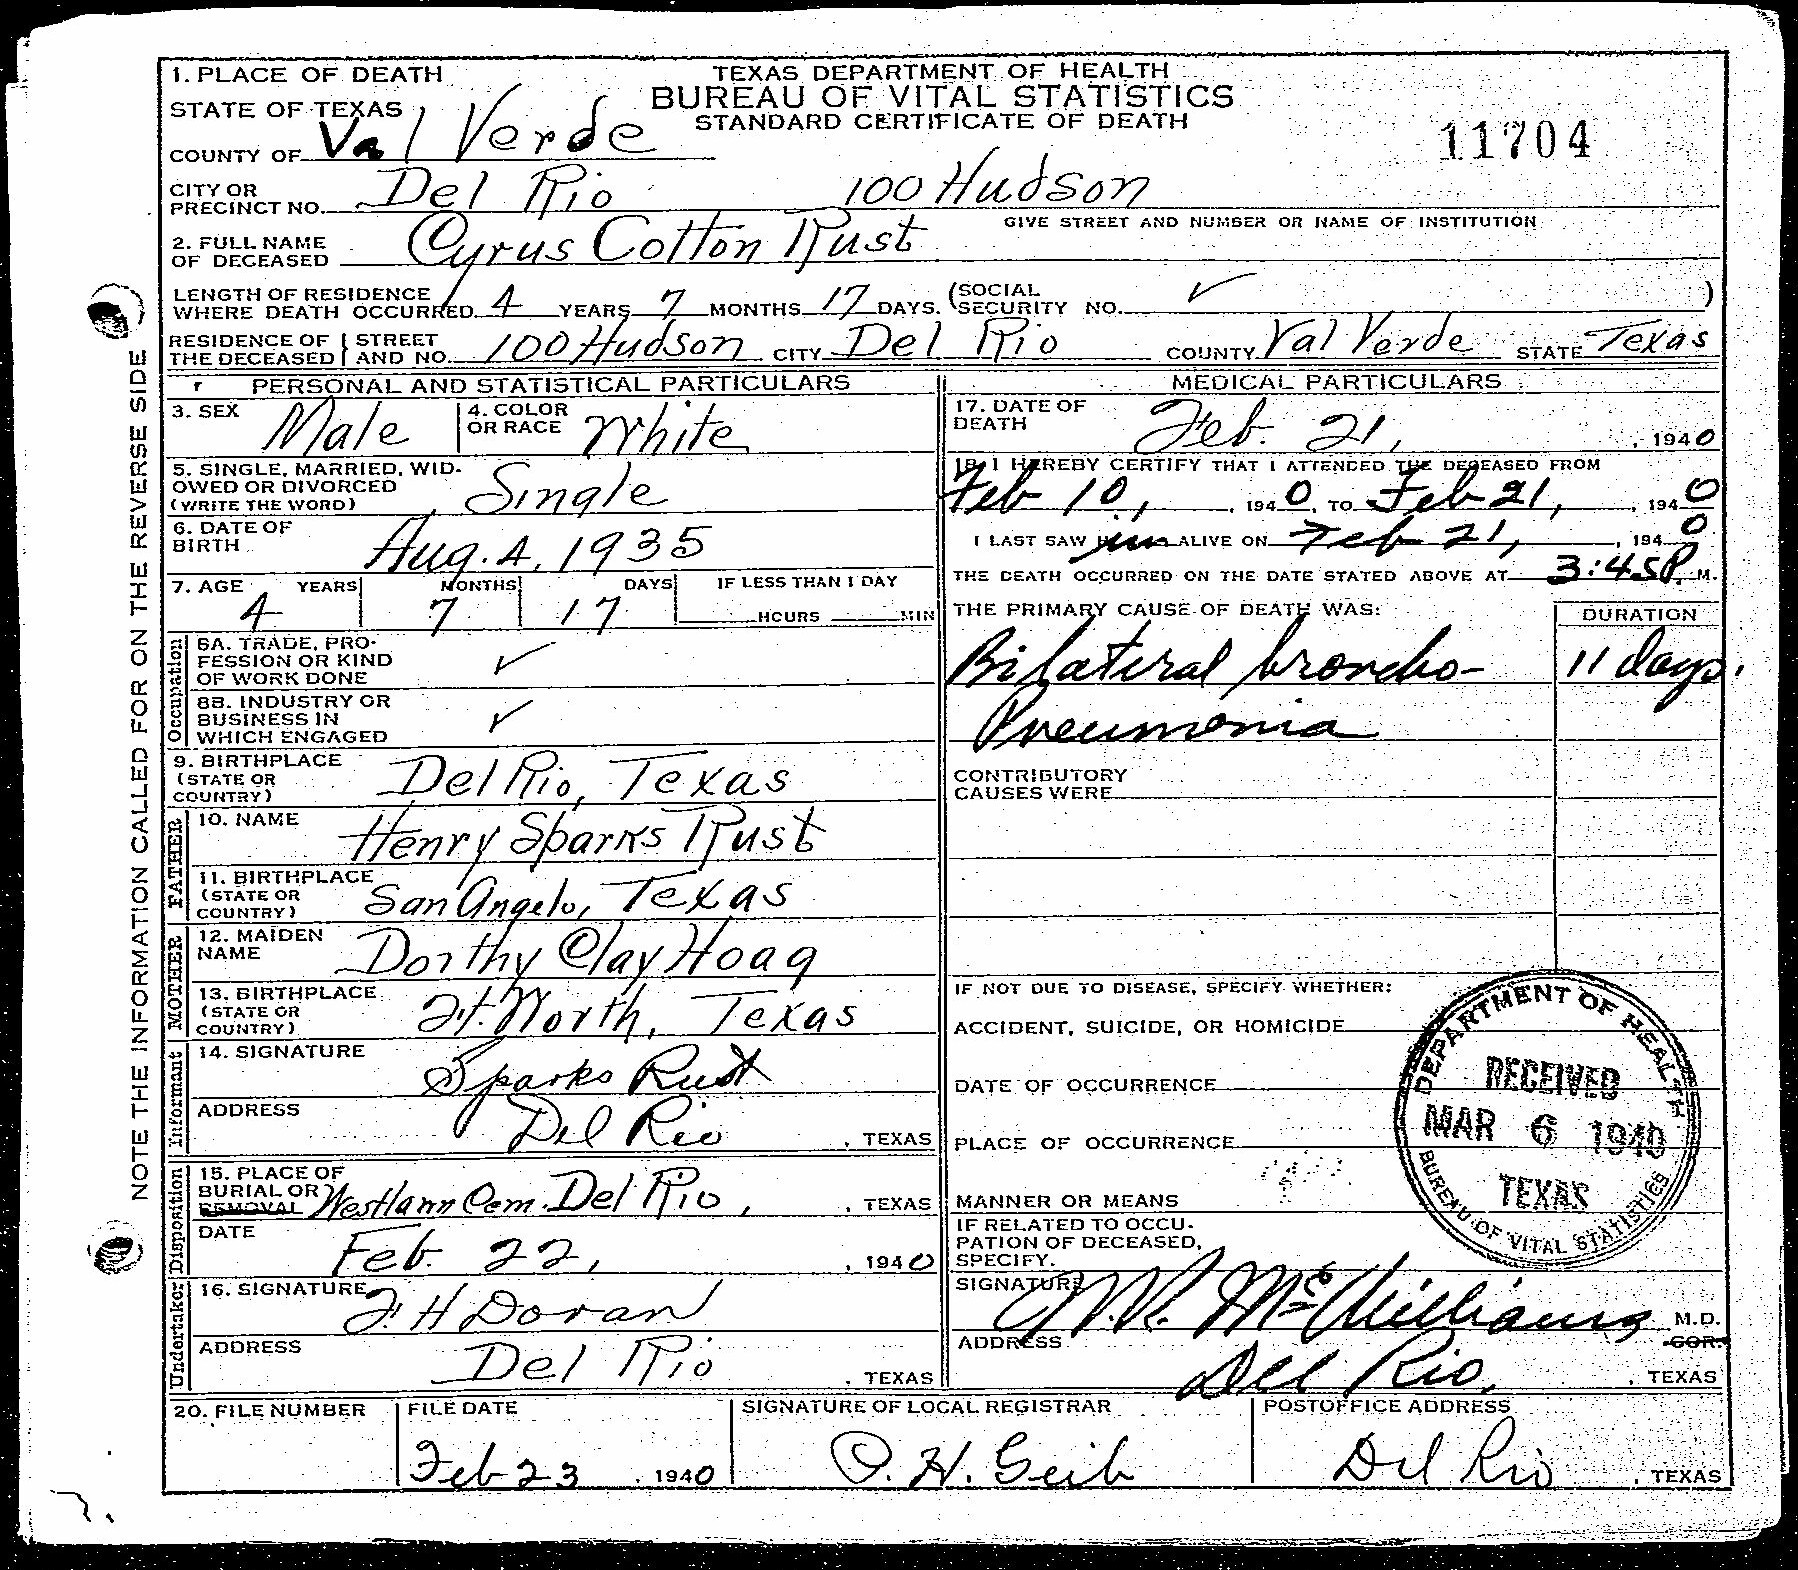 1. PLACE OF DEATH
TEXAS DEPARTMENT OF HEALTH
BUREAU OF VITAL STATISTICS
STANDARD CERTIFICATE OF DEATH
STATE OF TEXAS
COUNTY OF Val Verde
11704
CITY OR PRECINCT NO. Del Rio 100 Hudson
GIVE STREET AND NUMBER OR NAME OF INSTITUTION
2. FULL NAME OF DECEASED Cyrus Cotton Rust
LENGTH OF RESIDENCE WHERE DEATH OCCURRED 4 YEARS 7 MONTHS 17 DAYS. (SOCIAL SECURITY NO. ✓ )
RESIDENCE OF THE DECEASED STREET AND NO. 100 Hudson CITY Del Rio COUNTY Val Verde STATE Texas
PERSONAL AND STATISTICAL PARTICULARS
3. SEX Male 4. COLOR OR RACE White
5. SINGLE, MARRIED, WIDOWED OR DIVORCED (WRITE THE WORD) Single
6. DATE OF BIRTH Aug. 4, 1935
7. AGE YEARS MONTHS DAYS IF LESS THAN 1 DAY
4 7 17 HOURS MIN
Occupation
8A. TRADE, PROFESSION OR KIND OF WORK DONE ✓
8B. INDUSTRY OR BUSINESS IN WHICH ENGAGED ✓
9. BIRTHPLACE (STATE OR COUNTRY) Del Rio, Texas
FATHER
10. NAME Henry Sparks Rust
11. BIRTHPLACE (STATE OR COUNTRY) San Angelo, Texas
MOTHER
12. MAIDEN NAME Dorthy Clay Hoag
13. BIRTHPLACE (STATE OR COUNTRY) Ft. Worth, Texas
Informant
14. SIGNATURE Sparks Rust
ADDRESS Del Rio, TEXAS
Disposition
15. PLACE OF BURIAL OR REMOVAL Westlann Cem. Del Rio, TEXAS
DATE Feb. 22, 1940
Undertaker
16. SIGNATURE F. H Doran
ADDRESS Del Rio, TEXAS
MEDICAL PARTICULARS
17. DATE OF DEATH Feb. 21, 1940
18. I HEREBY CERTIFY THAT I ATTENDED THE DECEASED FROM
Feb 10, 1940, TO Feb 21, 1940
I LAST SAW him ALIVE ON Feb 21, 1940
THE DEATH OCCURRED ON THE DATE STATED ABOVE AT 3:45 P. M.
THE PRIMARY CAUSE OF DEATH WAS: DURATION
Bilateral broncho- 11 days.
Pneumonia
CONTRIBUTORY CAUSES WERE
IF NOT DUE TO DISEASE, SPECIFY WHETHER:
ACCIDENT, SUICIDE, OR HOMICIDE
DATE OF OCCURRENCE
PLACE OF OCCURRENCE
MANNER OR MEANS
IF RELATED TO OCCUPATION OF DECEASED, SPECIFY.
SIGNATURE W.R. McWilliams M.D. COR.
ADDRESS Del Rio, TEXAS
DEPARTMENT OF HEALTH
RECEIVED
MAR 6 1940
TEXAS
BUREAU OF VITAL STATISTICS
20. FILE NUMBER FILE DATE SIGNATURE OF LOCAL REGISTRAR POSTOFFICE ADDRESS
Feb 23, 1940 O. H. Geib Del Rio, TEXAS
NOTE THE INFORMATION CALLED FOR ON THE REVERSE SIDE